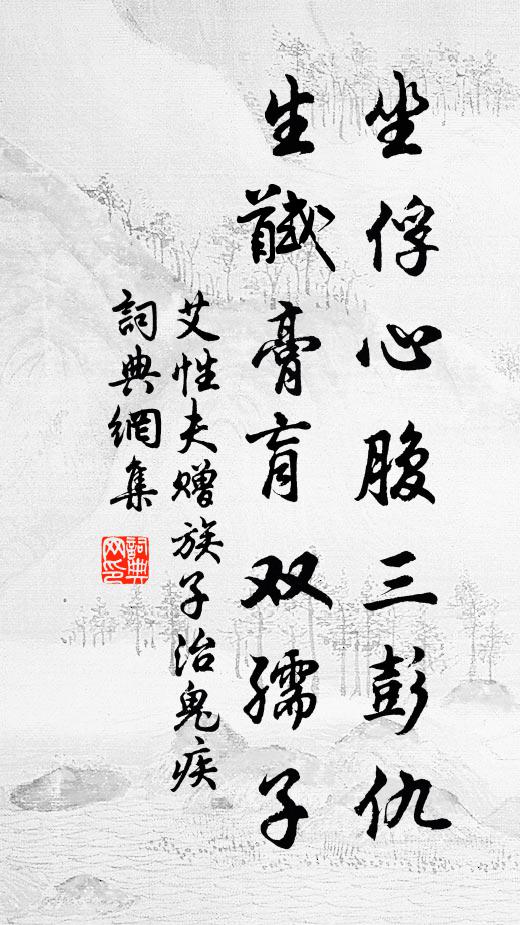 坐俘心腹三彭仇
生馘膏肓双孺子
艾性夫赠族子治鬼疾
詞典網集
詞典网印